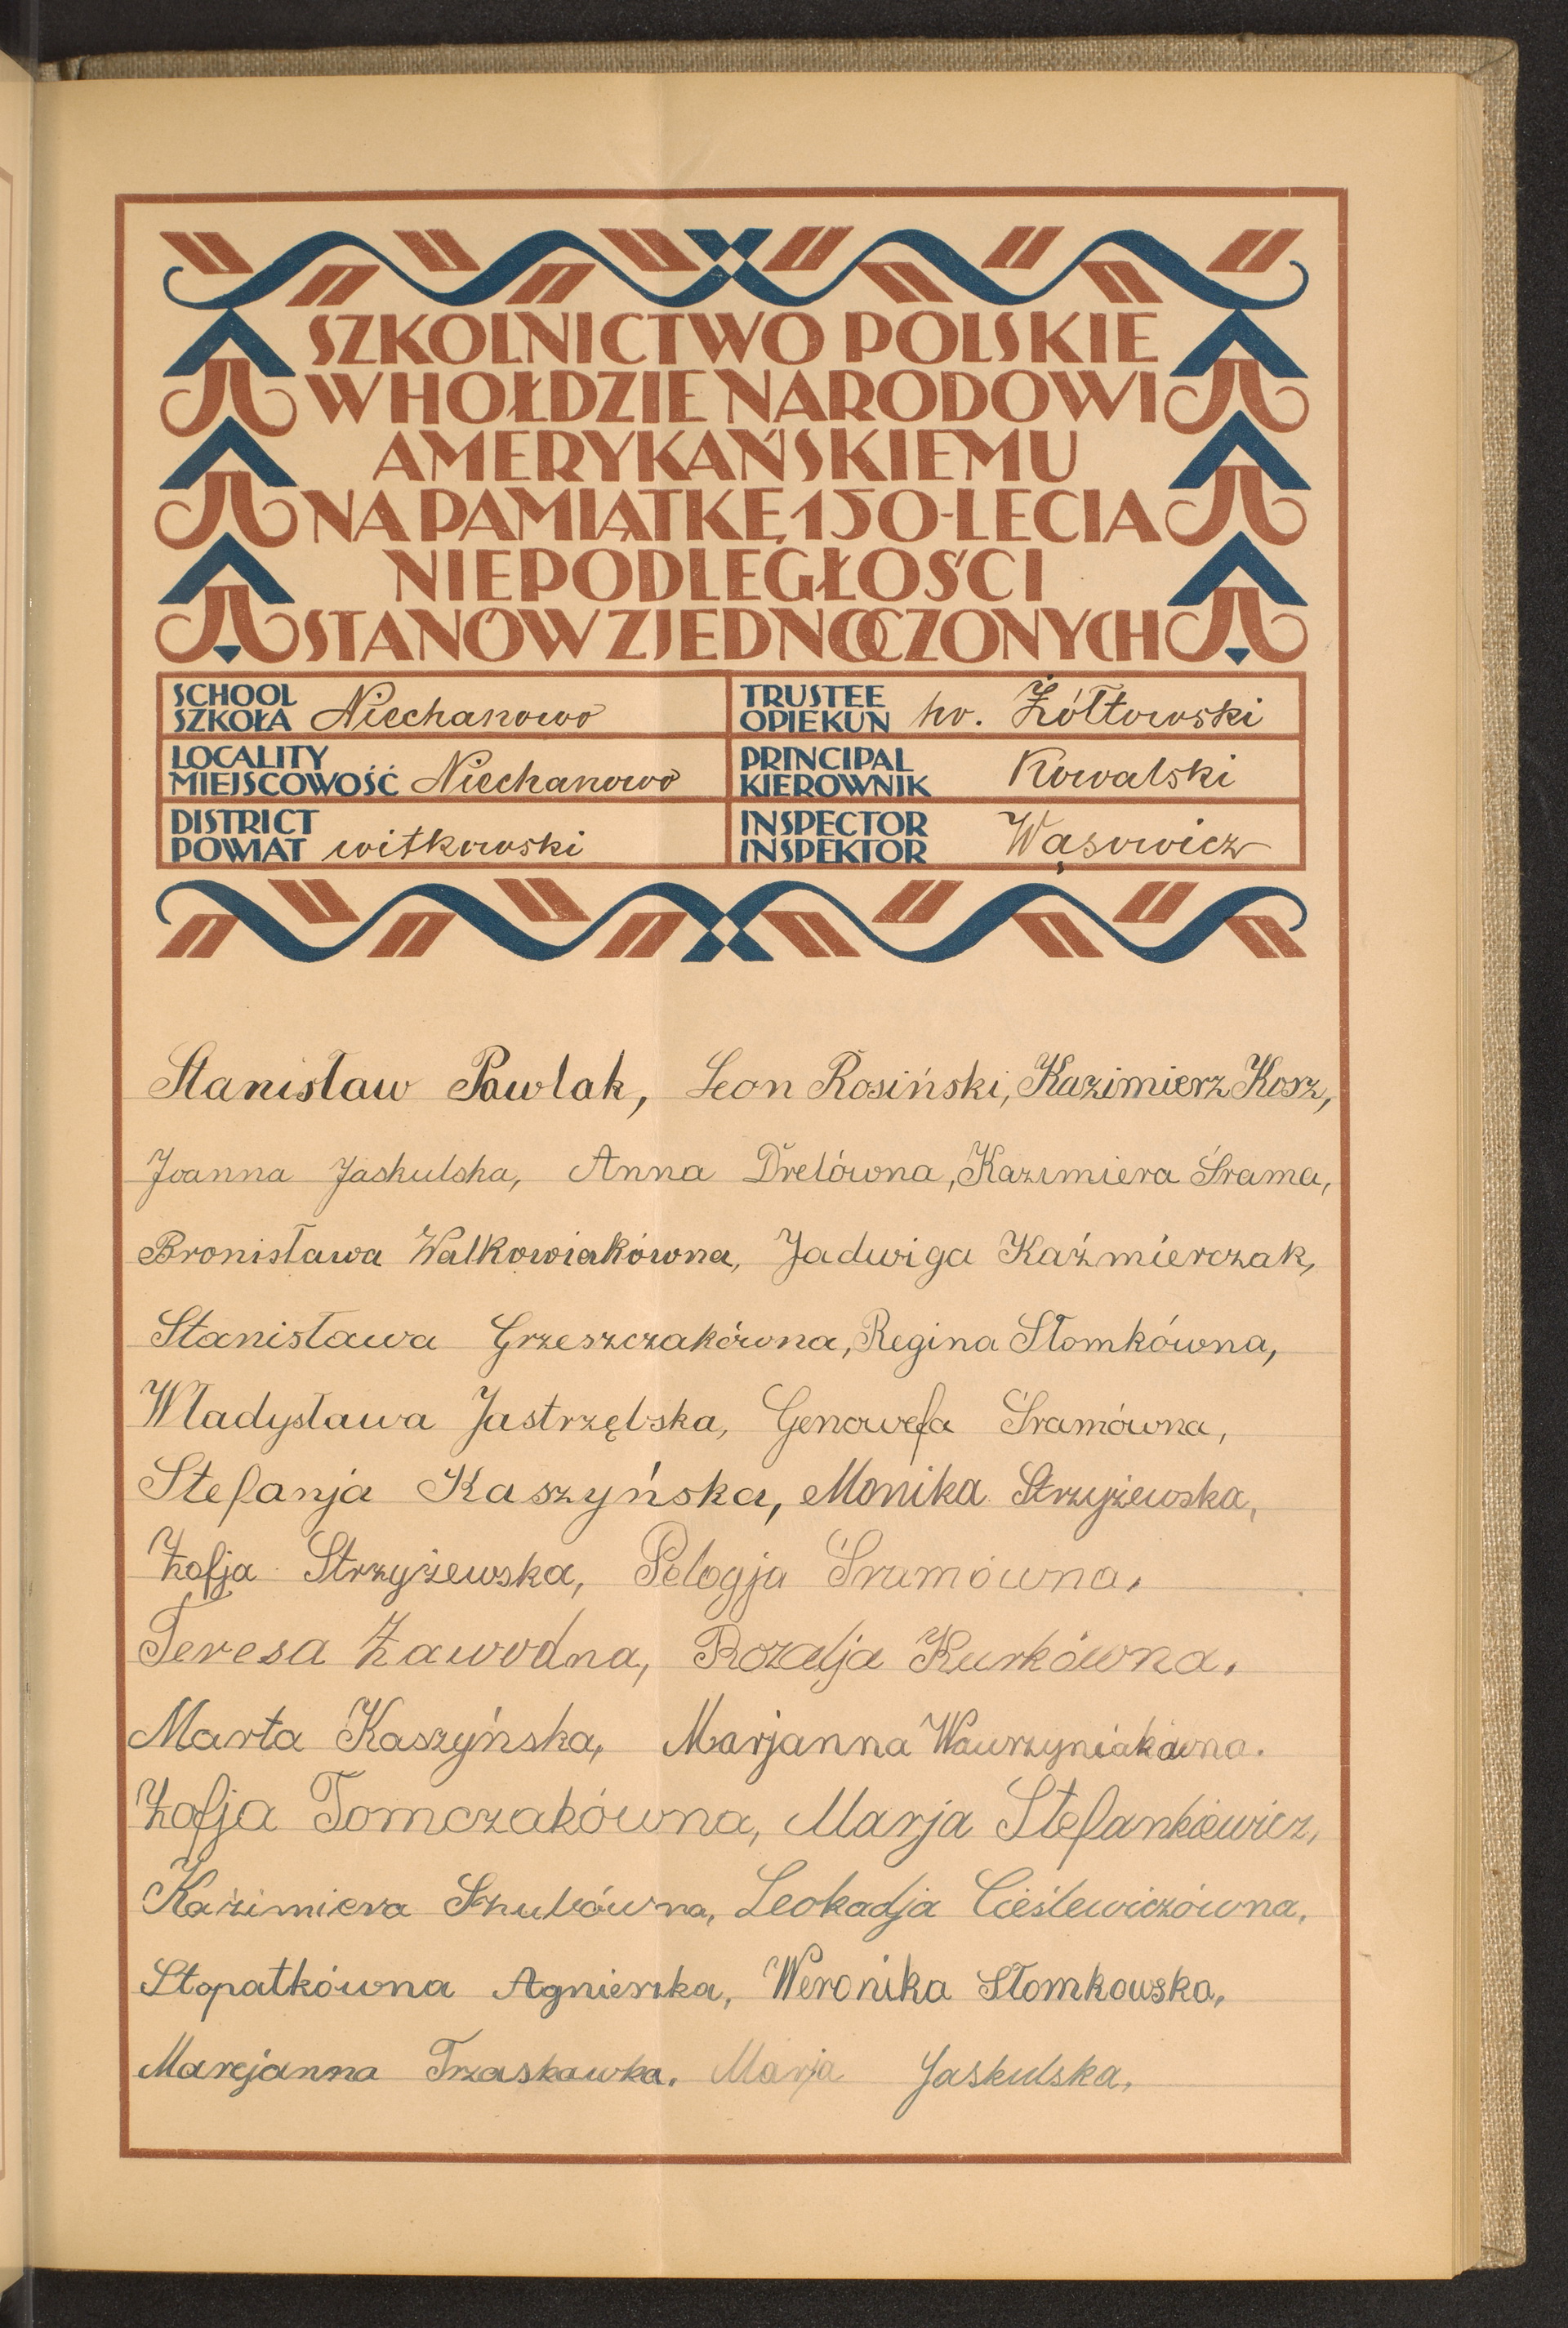 SZKOLNICTWO POLSKIE
W HOŁDZIE NARODOWI
AMERYKAŃSKIEMU
NA PAMIĄTKĘ 150-LECIA
NIEPODLEGŁOŚCI
STANÓW ZJEDNOCZONYCH
SCHOOL
SZKOŁA Niechanowo
TRUSTEE
OPIEKUN hr. Żółtowski
LOCALITY
MIEJSCOWOŚĆ Niechanowo
PRINCIPAL
KIEROWNIK Kowalski
DISTRICT
POWIAT witkowski
INSPECTOR
INSPEKTOR Wąsowicz
Stanisław Pawlak, Leon Rosiński, Kazimierz Kosz,
Joanna Jaskulska, Anna Drelówna, Kazimiera Śrama,
Bronisława Walkowiakówna, Jadwiga Kaźmierczak,
Stanisława Grzeszczakówna, Regina Słomkówna,
Władysława Jastrzębska, Genowefa Śramówna,
Stefanja Kaszyńska, Monika Strzyżewska,
Zofja Strzyżewska, Pelagja Śramówna,
Teresa Zawodna, Rozalja Kurkówna.
Marta Kaszyńska, Marjanna Wawrzyniakówna.
Zofja Tomczakówna, Marja Stefankiewicz,
Kazimiera Leokadja Cieślewiczówna,
Stopatkówna Agnieszka, Weronika Słomkowska,
Marejanna Trzaskawka. Marja Jaskulska,